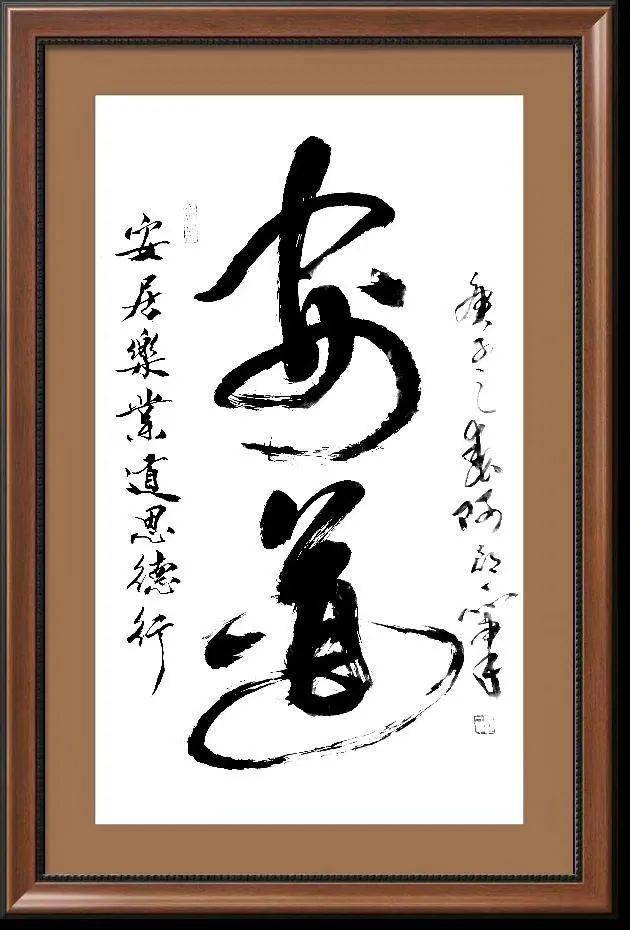 安道
安居樂業道思德行
庚子之春